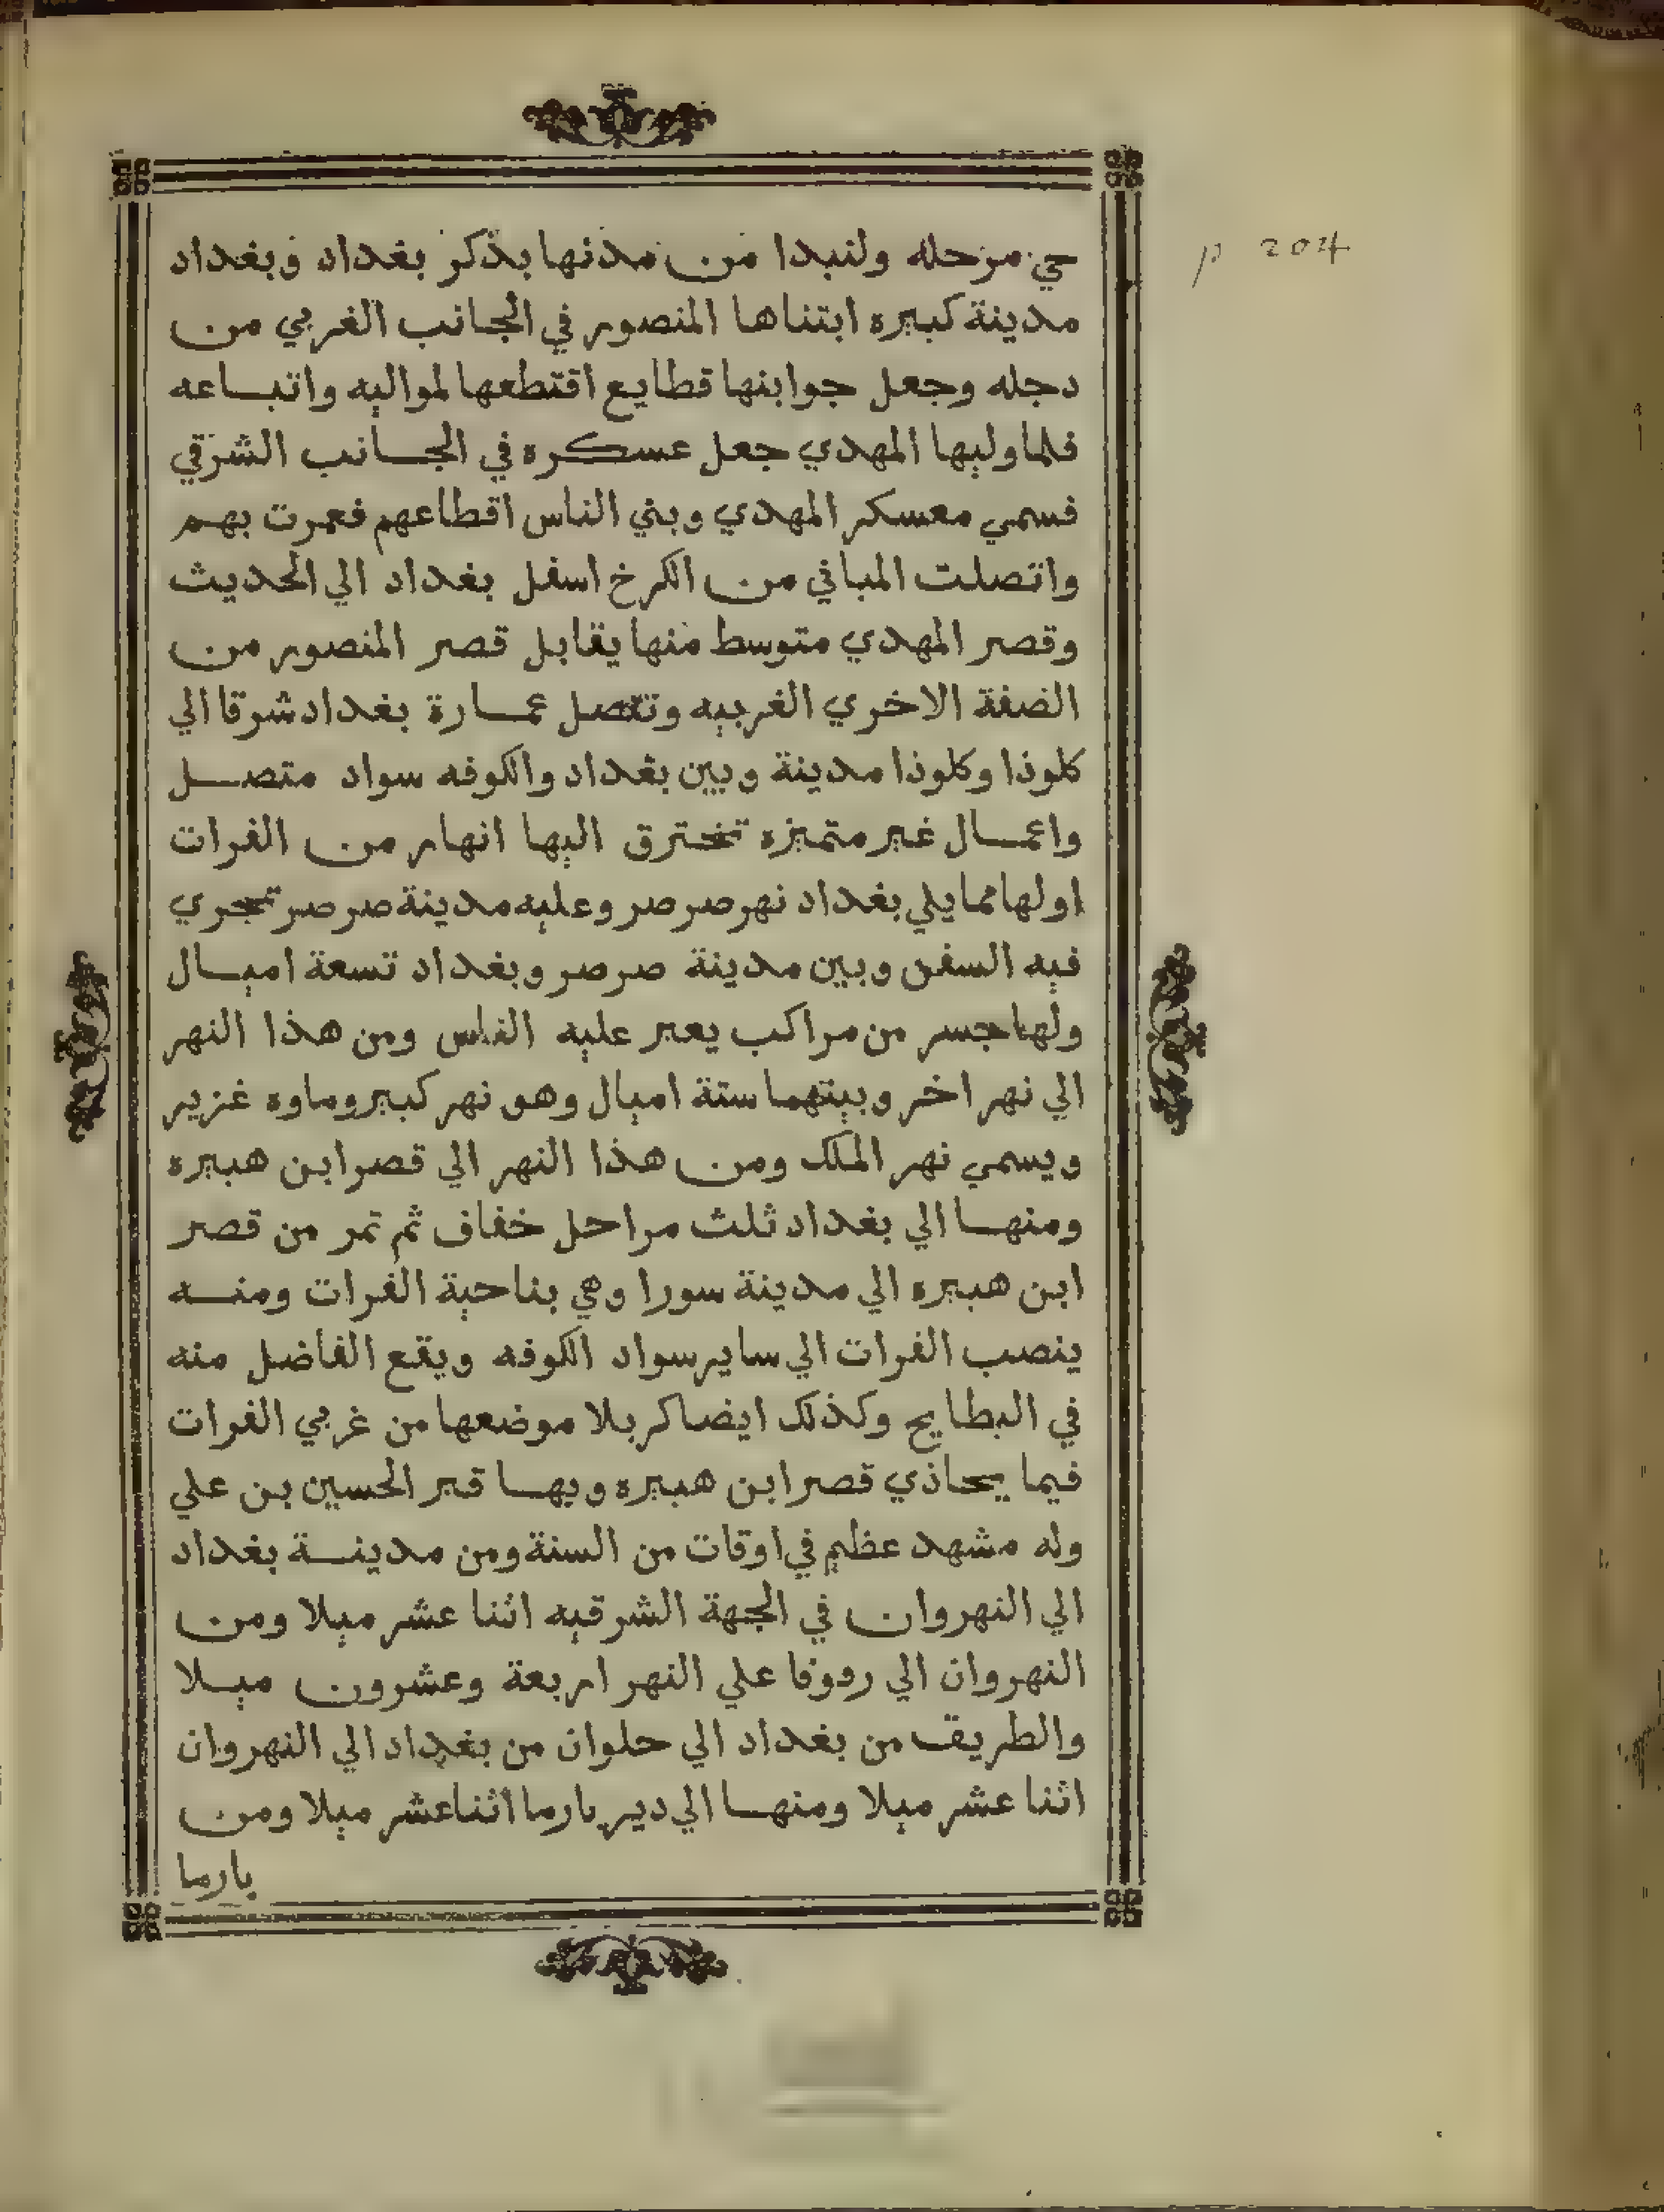 حي مرحله ولنبدا من مدنها بذكر بغداد وبغداد
p 204
مدينة كبيره ابتناها المنصور في الجانب الغربي من
دجله وجعل جوابنها قطايع اقتطعها لمواليه واتباعه
فلما وليها المهدي جعل عسكره في الجانب الشرقي
فسمي معسكر المهدي وبني الناس اقطاعهم فعمرت بهم
واتصلت المباني من الكرخ اسفل بغداد الي الحديث
وقصر المهدي متوسط منها يقابل قصر المنصور من
الضفة الاخري الغربيه وتتصل عمارة بغداد شرقا الي
كلوذا وكلوذا مدينة وبين بغداد والكوفه سواد متصل
واعمال غير متميزه تخترق اليها انهار من الفرات
اولها مما يلي بغداد نهر صرصر وعليه مدينة صرصر تجري
فيه السفن وبين مدينة صرصر وبغداد تسعة اميال
ولها جسر من مراكب يعبر عليه الناس ومن هذا النهر
الي نهر اخر وبينهما ستة اميال وهو نهر كبير وماوه غزير
ويسمي نهر الملك ومن هذا النهر الي قصر ابن هبيره
ومنها الي بغداد ثلث مراحل خفاف ثم تمر من قصر
ابن هبيره الي مدينة سورا وهي بناحية الفرات ومنه
ينصب الفرات الي ساير سواد الكوفه ويقع الفاضل منه
في البطايح وكذلك ايضا كربلا موضعها من غربي الفرات
فيما يحاذي قصر ابن هبيره وبها قبر الحسين بن علي
وله مشهد عظيم في اوقات من السنة ومن مدينة بغداد
الي النهروان في الجهة الشرقيه اثنا عشر ميلا ومن
النهروان الي علي النهر اربعة وعشرون ميلا
والطريق من بغداد الي حلوان من بغداد الي النهروان
اثنا عشر ميلا ومنها الي دير بارما اثنا عشر ميلا ومن
بارما